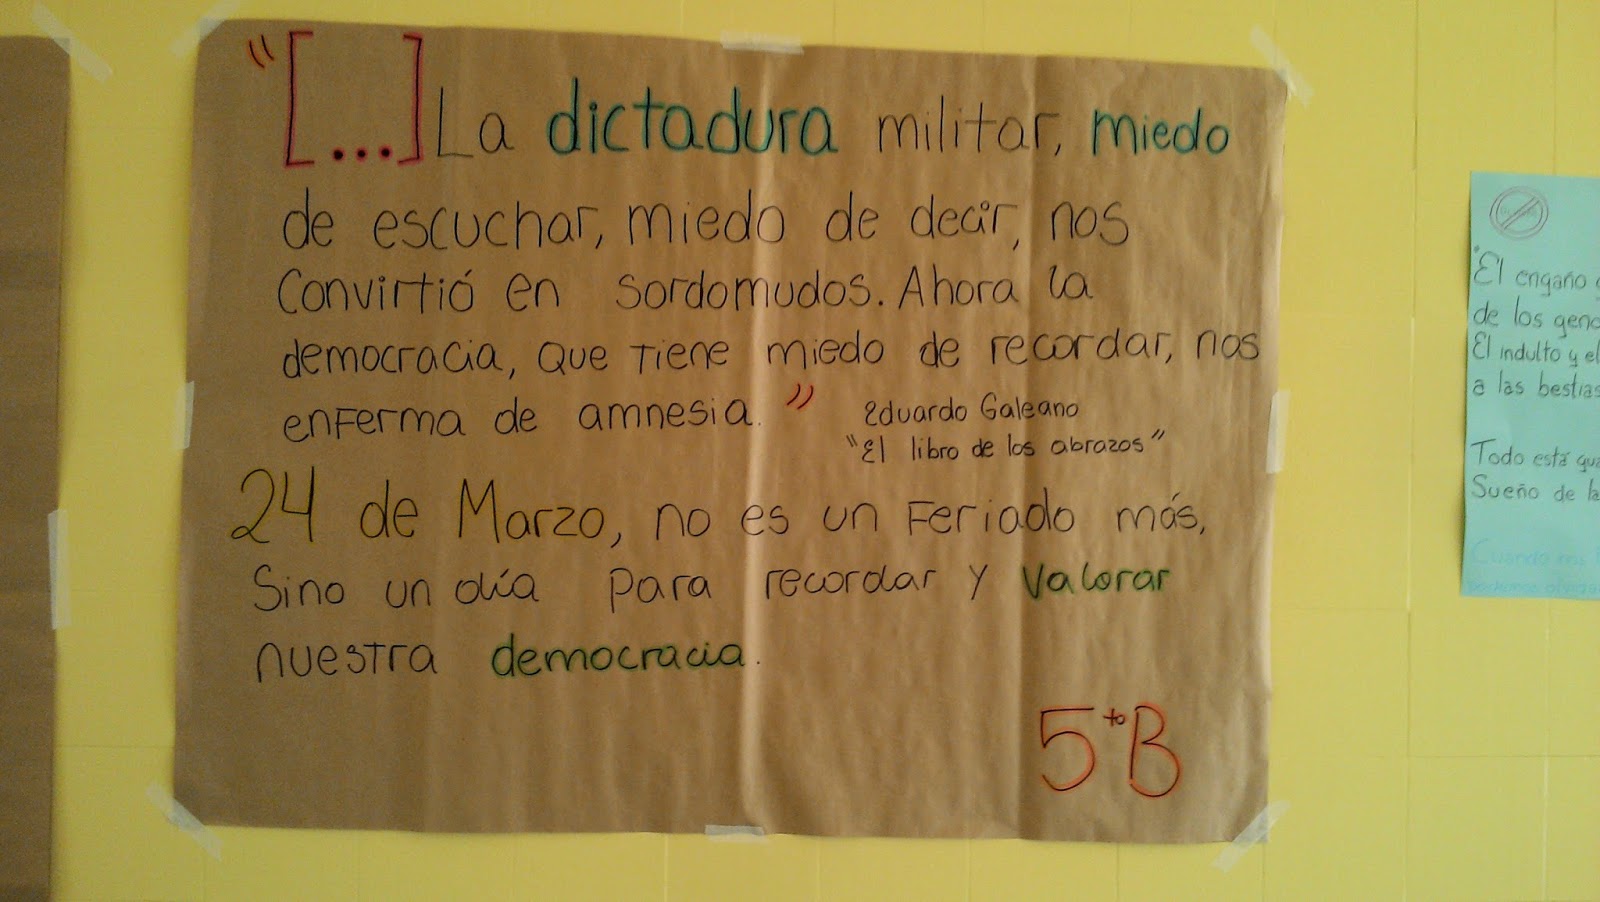 “[...] La dictadura militar, miedo
de escuchar, miedo de decir, nos
convirtió en sordomudos. Ahora la
democracia, que tiene miedo de recordar, nos
enferma de amnesia.”
Eduardo Galeano
“El libro de los abrazos”
24 de Marzo, no es un feriado más,
Sino un día para recordar y valorar
nuestra democracia.
5to B
"El engaño
de los
El indulto y el
a las bestias
Todo está
Sueño de la
Cuando